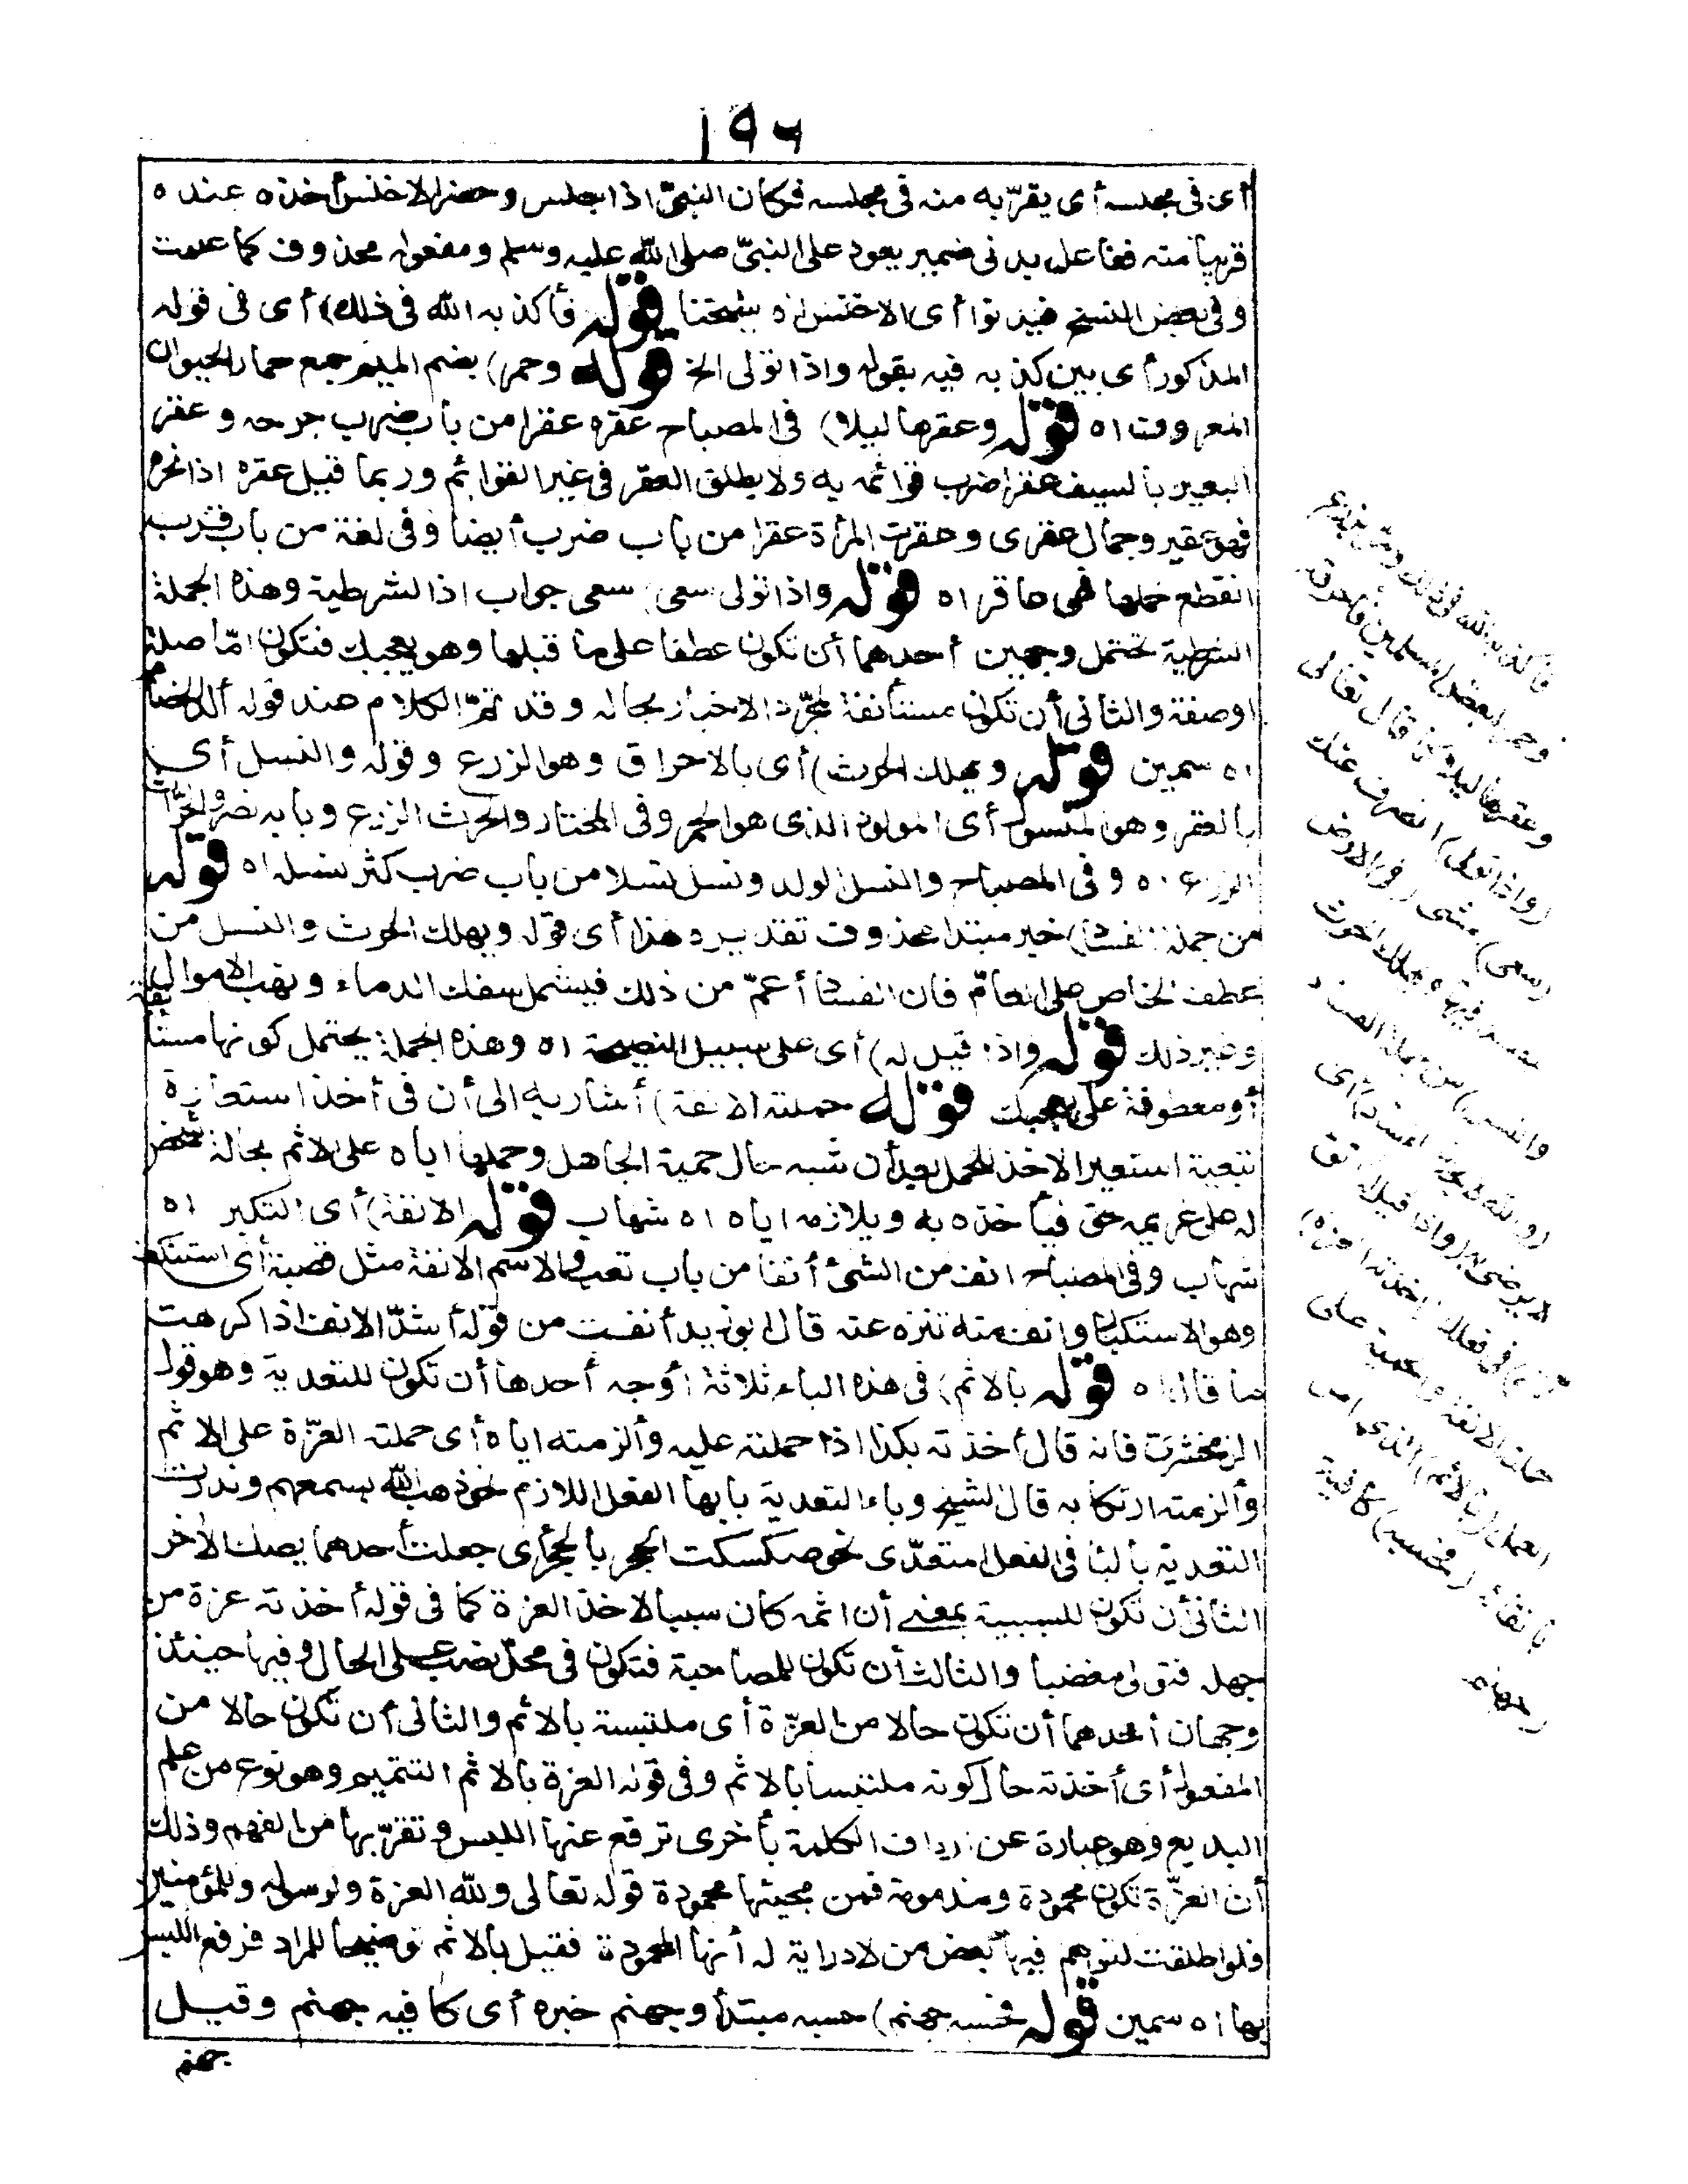 ١٩٦
أى فى مجلسه أى يقرّبه منه فى مجلسه فكان النبىّ اذا جلس وحضر الاخنس أخذه عنده
قريبا منه ففاعل يدنى ضمير يعود على النبىّ صلى الله عليه وسلم ومفعوله محذوف كما علمت
وفى بعض النسخ فيدنوا أى الاخنس اه شيخنا قوله فأكذبه الله فى ذلك) أى فى قوله
المذكور أى بين كذبه فيه بقوله واذا تولى الخ قوله وحمر) بضم الميم جمع حمار الحيوان
المعروف اه قوله وعقرها ليلا) فى المصباح عقره عقرا من باب ضرب جرحه وعقر
البعير بالسيف عقرا ضرب قوائمه به ولا يطلق العقر فى غير القوائم وربما قيل عقره اذا نحره
فهو عقير وجمال عقرى وعقرت المرأة عقرا من باب ضرب أيضا وفى لغة من باب قرب
انقطع حملها فهى عاقر اه قوله واذا تولى سعى) سعى جواب اذا الشرطية وهذه الجملة
الشرطية تحتمل وجهين أحدهما أن تكون عطفا على ما قبلها وهو يعجبك فتكون امّا صلة
اوصفة والثانى أن تكون مستأنفة لمجرّد الاخبار بحاله وقد تمّ الكلام عند قوله ألد الخصام
اه سمين قوله ويهلك الحرث) أى بالاحراق وهو الزرع وقوله والنسل أى
بالعقر وهو المنسول أى المولود الذى هو الحمر وفى المختار والحرث الزرع وبابه نصر والحرّاث
الزرع اه وفى المصباح والنسل الولد ونسل نسلا من باب ضرب كثر نسله اه قوله
من جملة الفساد) خبر مبتدا محذوف تقديره هذا أى قوله ويهلك الحرث والنسل من
عطف الخاص على العامّ فان الفساد أعمّ من ذلك فيشمل سفك الدماء ونهب الاموال
وغير ذلك قوله واذا قيل له) أى على سبيل النصيحة اه وهذه الجملة يحتمل كونها مستأنفة
أو معطوفة على يعجبك قوله حملته الانفة) أشار به الى أن فى أخذ استعارة
تبعية استعير الاخذ للحمل بعد أن شبه حال حمية الجاهل وحملها اياه على الاثم بحالة شخص
له على غريمه حق فيأخذه به ويلازمه اياه اه شهاب قوله الانفة) أى التكبر اه
شهاب وفى المصباح انف من الشئ أنفا من باب تعب والاسم الانفة مثل قصبة أى استنكف
وهو الاستكبار وانف منه تنزه عنه قال ابو زيد أنفت من قوله أشدّ الانف اذا كرهت
ما قال اه قوله بالاثم) فى هذه الباء ثلاثة أوجه أحدها أن تكون للتعدية وهو قول
الزمخشرى فانه قال أخذته بكذا اذا حملته عليه وألزمته اياه أى حملته العزّة على الاثم
وألزمته ارتكابه قال الشيخ وباء التعدية بابها الفعل اللازم نحو ذهب الله بسمعهم وندرت
التعدية بالبا فى الفعل المتعدّى نحو صككت الحجر بالحجر أى جعلت أحدهما يصك الآخر
الثانى أن تكون للسببية بمعنى أن اثمه كان سببا لاخذ العزة كما فى قوله أخذته عزة من
جهله فتولى مغضبا والثالث أن تكون للمصاحبة فتكون فى محلّ نصب على الحال وفيها حينئذ
وجهان أحدهما أن تكون حالا من العزّة أى ملتبسة بالاثم والثانى أن تكون حالا من
المفعول أى أخذته حال كونه ملتبسا بالاثم وفى قوله العزة بالاثم التتميم وهو نوع من علم
البديع وهو عبارة عن ارداف الكلمة بأخرى ترفع عنها اللبس وتقرّبها من الفهم وذلك
أن العزّة تكون محمودة ومذمومة فمن مجيئها محمودة قوله تعالى ولله العزة ولرسوله وللمؤمنين
فلو اطلقت لتوهم فيها بعض من لا دراية له أنها المحمودة فقيل بالاثم توضيحا للمراد فرفع اللبس
بها اه سمين قوله فحسبه جهنم) حسبه مبتدأ وجهنم خبره أى كافيه جهنم وقيل
جهنم
فأكذبه الله فى ذلك ومرّ بزرع
وحمر لبعض المسلمين فأحرقه
وعقرها ليلا كما قال تعالى
(واذا تولى) انصرف عنك
(سعى) مشى (فى الارض
ليفسد فيها ويهلك الحرث
والنسل) من جملة الفساد
(والله لا يحب الفساد) أى
لا يرضى به (واذا قيل له اتق
الله) فى فعلك (أخذته العزة)
حملته الانفة والحمية على
العمل (بالاثم) الذى امر
باتقائه (فحسبه) كافيه
(جهنم